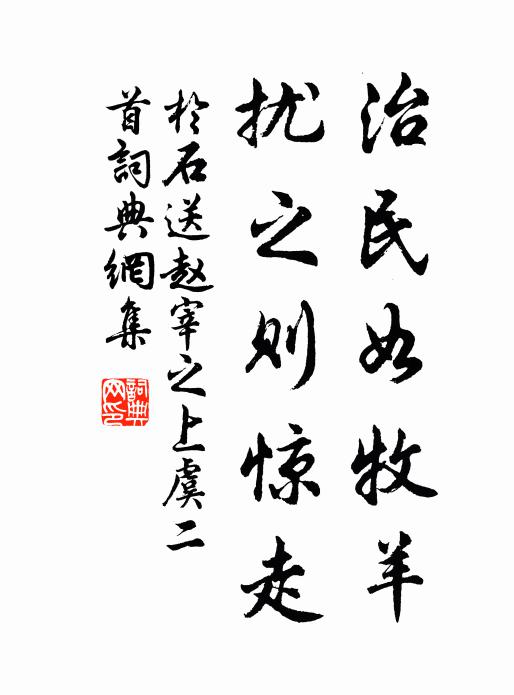 治民如牧羊
扰之则惊走
於石送赵宰之上虞二
首詞典網集
詞典
网印